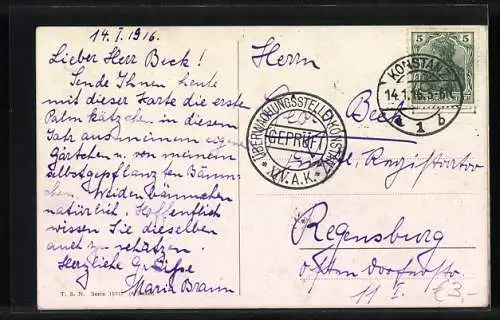 14. I. 1916.
Lieber Herr Beck!
Sende Ihnen heute
mit dieser Karte die ersten
Palmkätzchen in diesem
Jahr aus meinem eigenen
Gärtchen u. von meinem
selbstgepflanzten Bäumchen
Weidenbäumchen
natürlich. Hoffentlich
wissen Sie dieselben
auch zu schätzen.
Herzliche Grüße
Maria Braun
T. S. N. Serie
Herrn
Beck
Registrator
Regensburg
11 I.
€3,-
5
KONSTANZ
14.1.16.5-6N.
* 1 b
ÜBERWACHUNGSSTELLE KONSTANZ
GEPRÜFT
* XIV. A.K. *